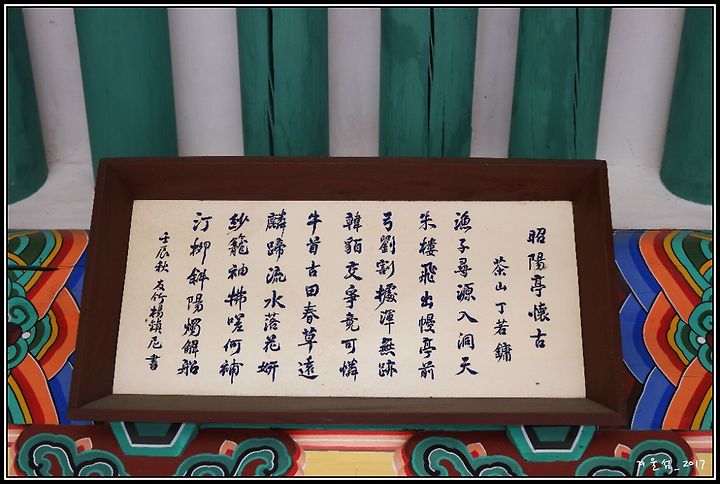 昭陽亭懷古
茶山 丁若鏞
漁子尋源入洞天
朱樓飛出幔亭前
弓劉割據渾無跡
韓貊交爭竟可憐
牛首古田春草遠
麟蹄流水落花妍
紗籠袖拂嗟何補
汀柳斜陽燭解船
壬辰秋 友竹楊鎮尼 書
겨울섬_2017